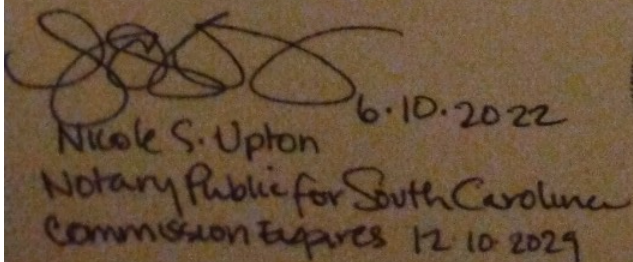 6.10.2022
Nicole S. Upton
Notary Public for South Carolina
Commission Expires 12.10.2029